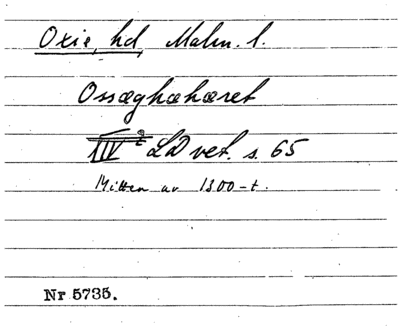 Oxie, hd, Malm. l.
Ossæghæhæret
LD vet. s. 65
Mitten av 1300-t.
Nr 5735.